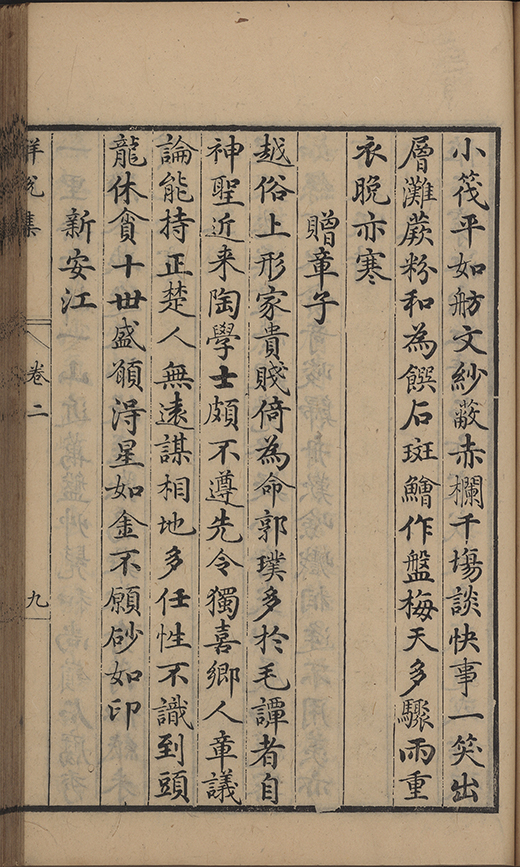 小筏平如舫文紗蔽赤欄千塲談快事一笑出
層灘蕨粉和為饌石斑鱠作盤梅天多驟雨重
衣晚亦寒
贈章子
越俗上形家貴賤倚為命郭璞多於毛譚者自
神聖近来陶學士頗不遵先令獨喜鄉人章議
論能持正楚人無遠謀相地多任性不識到頭
龍休貪十世盛願淂星如金不願砂如印
新安江
觧脫集
卷二
九